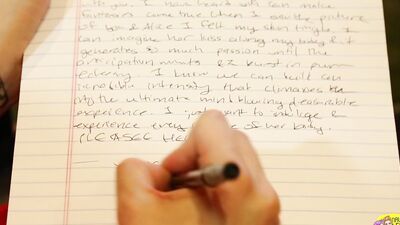 with you. I have heard you can make
fantasies come true. When I saw the picture
of you & her I felt my skin tingle. I
can imagine her kiss along my body & it
generates so much passion until the
anticipation mounts & burst in pure
ecstasy. I know we can build an
incredible intensity that climaxes
into the ultimate mind blowing pleasurable
experience. I just want to indulge &
experience every of her body.
PLEASEE HE